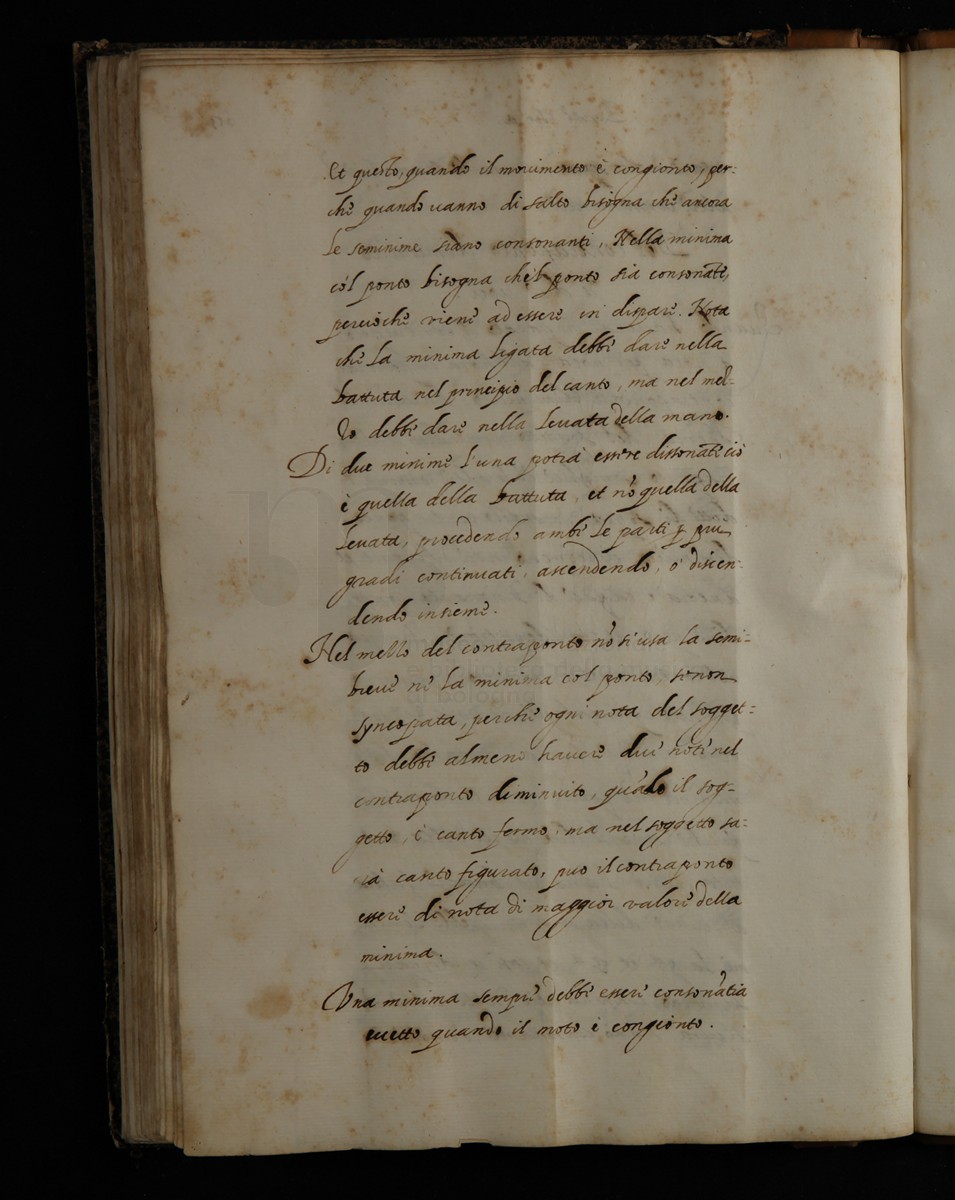 Et questo, quando il movimento è congionto, per:
che quando vanno di salto bisogna che ancora
le seminime siano consonanti, Nella minima
col ponto bisogna che'l ponto sia consonãte,
percioche viene ad essere in dispare. Nota
che la minima ligata debbe dare nella
battuta nel principio del canto, ma nel mel-
lo debbe dare nella levata della mano.
Di due minime l'una potrà essere dissonãte ciò
è quella della battuta, et nõ quella della
levata, procedendo ambe le parti p più
gradi continuati, ascendendo, ò discen-
dendo insieme.
Nel mello del contraponto nõ si usa la semi=
breve ne la minima col ponto se non
syncopata, perche ogni nota del sogget=
to debbe almeno havere due note nel
contraponto diminuito, quãdo il sog-
getto, è canto fermo, ma nel soggetto sa=
rà canto figurato, può il contraponto
essere di nota di maggior valore della
minima.
Una minima sempre debbe essere consonãtia
eccetto quando il moto è congionto.